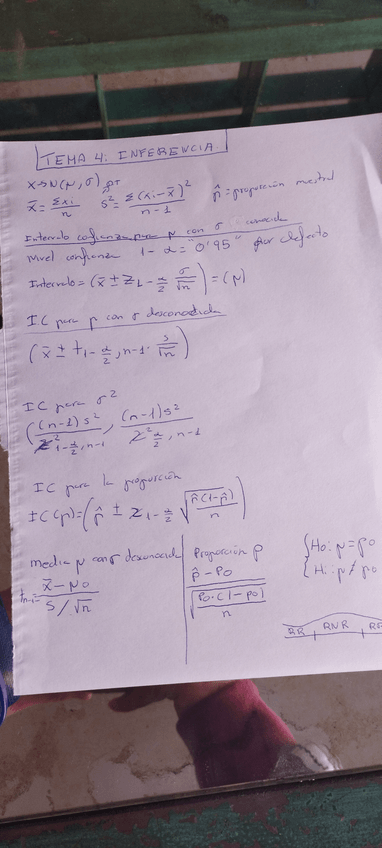 TEMA 4: INFERENCIA
X→N(μ, σ)
x̄ = Σxi/n   s² = Σ(xi - x̄)²/(n-1)   p̂ = proporción mestral
Intervalo confianza para μ con σ conocida
Nivel confianza 1-α = "0'95" por defecto
Intervalo = (x̄ ± z 1-α/2 σ/√n) = (μ)
IC para μ con σ desconocida
(x̄ ± t 1-α/2, n-1 · s/√n)
IC para σ²
((n-1)s²/χ² 1-α/2, n-1 , (n-1)s²/χ² α/2, n-1)
IC para la proporción
IC(p) = (p̂ ± z 1-α/2 √(p̂(1-p̂)/n))
media μ con σ desconocida
tn-1 = (x̄ - μ0)/(S/√n)
Proporción p
(p̂ - p0)/√(p0·(1-p0)/n)
{H0: p = p0
{H1: p ≠ p0
RR | RNR | RR